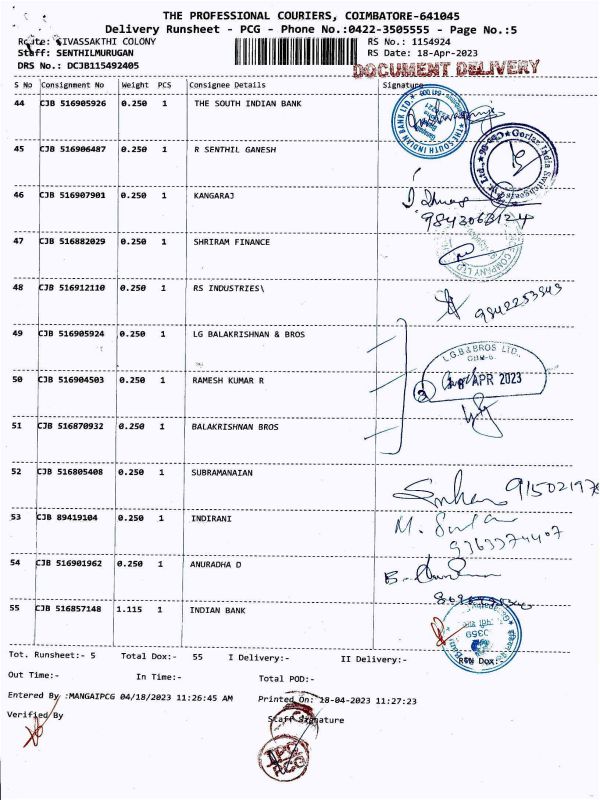 THE PROFESSIONAL COURIERS, COIMBATORE-641045
Delivery Runsheet - PCG - Phone No.:0422-3505555 - Page No.:5
Route: SIVASSAKTHI COLONY RS No.: 1154924
Staff: SENTHILMURUGAN RS Date: 18-Apr-2023
DRS No.: DCJB115492405 DOCUMENT DELIVERY
S No Consignment No Weight PCS Consignee Details Signature
44 CJB 516905926 0.250 1 THE SOUTH INDIAN BANK
45 CJB 516906487 0.250 1 R SENTHIL GANESH
46 CJB 516907901 0.250 1 KANGARAJ
9843063124
47 CJB 516882029 0.250 1 SHRIRAM FINANCE
48 CJB 516912110 0.250 1 RS INDUSTRIES\
9842253343
49 CJB 516905924 0.250 1 LG BALAKRISHNAN & BROS
L.G.B & BROS LTD.,
50 CJB 516904503 0.250 1 RAMESH KUMAR R
APR 2023
3
51 CJB 516870932 0.250 1 BALAKRISHNAN BROS
52 CJB 516805408 0.250 1 SUBRAMANAIAN
53 CJB 89419104 0.250 1 INDIRANI
9363374407
54 CJB 516901962 0.250 1 ANURADHA D
55 CJB 516857148 1.115 1 INDIAN BANK
Tot. Runsheet:- 5 Total Dox:- 55 I Delivery:- II Delivery:- RTN Dox:-
Out Time:- In Time:- Total POD:-
Entered By :MANGAIPCG 04/18/2023 11:26:45 AM Printed On: 18-04-2023 11:27:23
Verified By Staff Signature